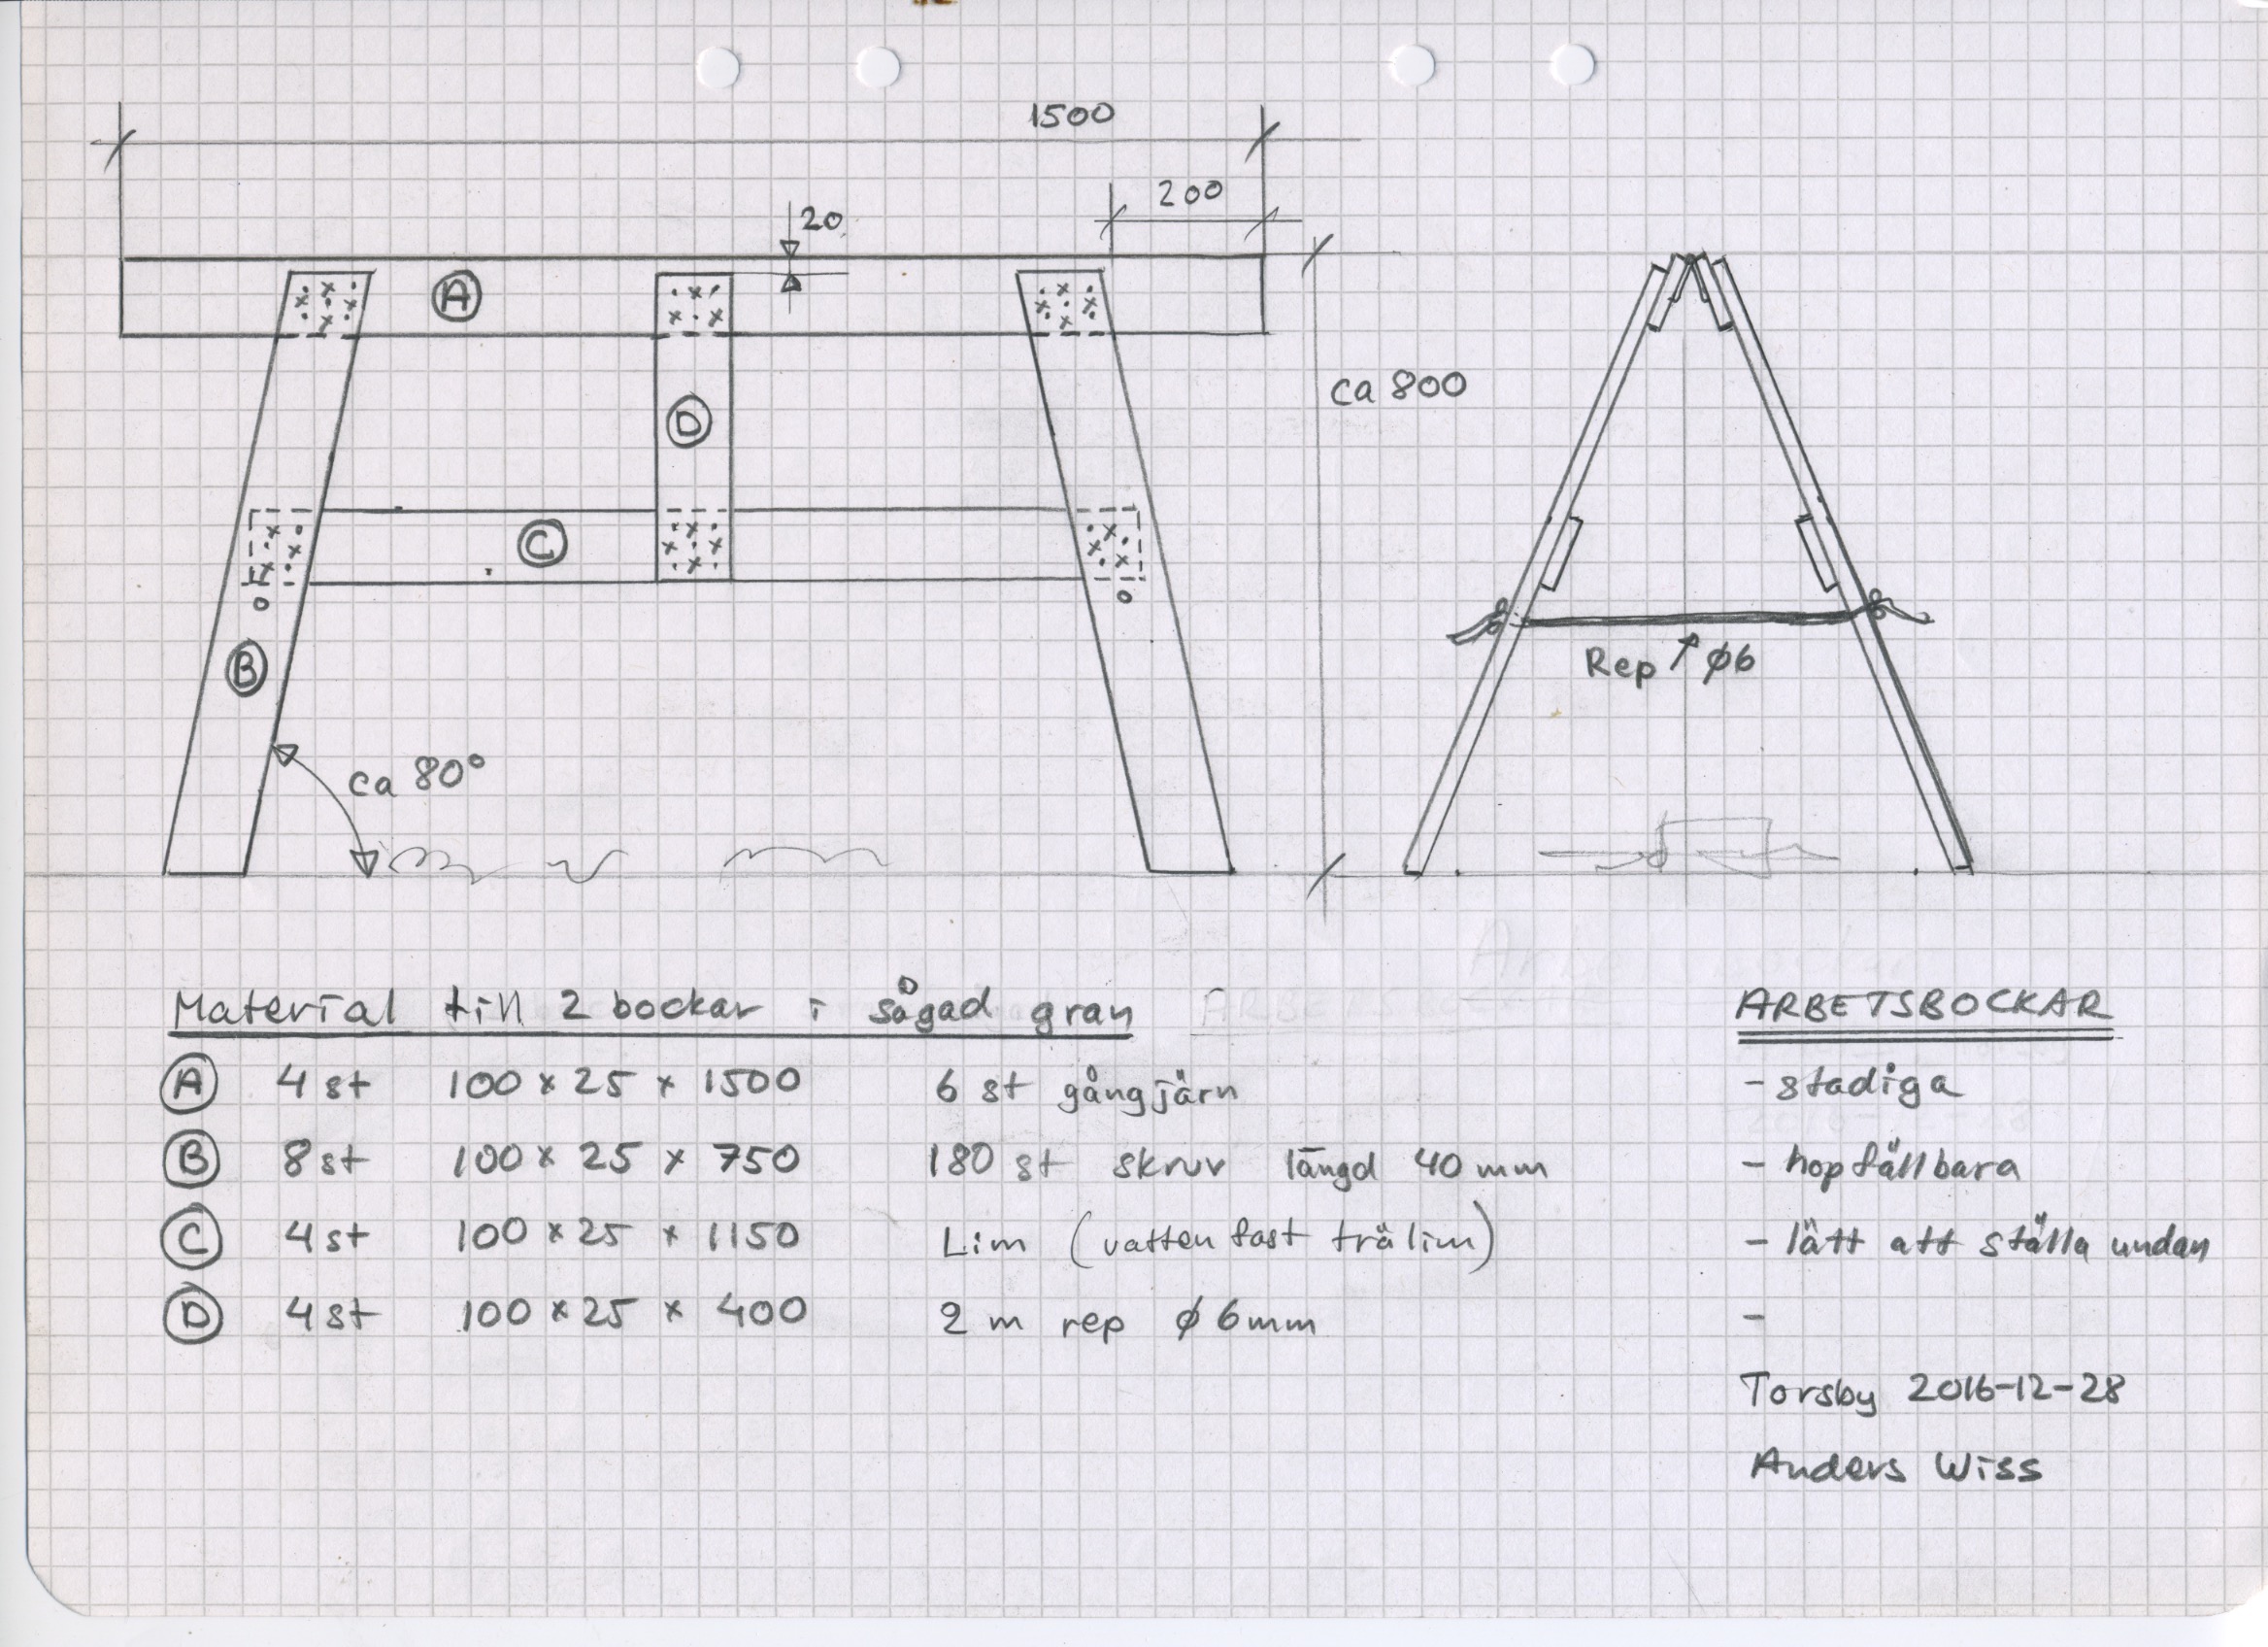 1500
200
20
A
ca 800
D
C
B
Rep ↑ ø6
ca 80°
Material till 2 bockar i sågad gran
A 4 st 100 x 25 x 1500 6 st gångjärn
B 8 st 100 x 25 x 750 180 st skruv längd 40 mm
C 4 st 100 x 25 x 1150 Lim (vattenfast trälim)
D 4 st 100 x 25 x 400 2 m rep ø 6mm
ARBETSBOCKAR
- stadiga
- hopfällbara
- lätt att ställa undan
-
Torsby 2016-12-28
Anders Wiss